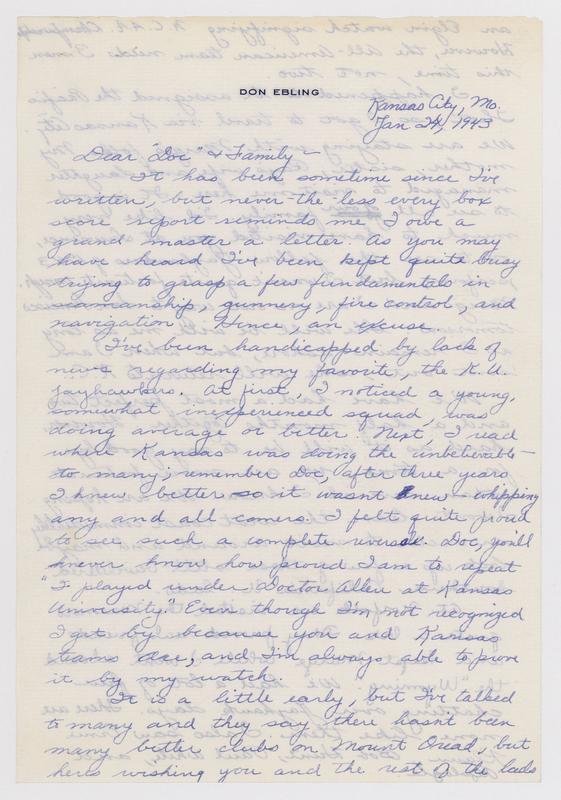 DON EBLING
Kansas City, Mo.
Jan 24, 1943
Dear "Doc" & Family –
It has been sometime since I've
written, but never-the-less every box
score report reminds me I owe a
grand master a letter. As you may
have heard I've been kept quite busy
trying to grasp a few fundamentals in
seamanship, gunnery, fire control, and
navigation. Hence, an excuse.
I've been handicapped by lack of
news regarding my favorite, the K.U.
Jayhawkers. At first, I noticed a young,
somewhat inexperienced squad, was
doing average or better. Next, I read
where Kansas was doing the unbelievable –
to many; remember Doc, after three years
I knew better so it wasnt new – whipping
any and all comers. I felt quite proud
to see such a complete reversal. Doc, you'll
never know how proud I am to repeat
"I played under Doctor Allen at Kansas
University." Even though I'm not recognized
I get by because you and Kansas
teams are, and I'm always able to prove
it by my watch.
It is a little early, but I've talked
to many and they say there hasn't been
many better clubs on Mount Oread, but
heres wishing you and the rest of the lads